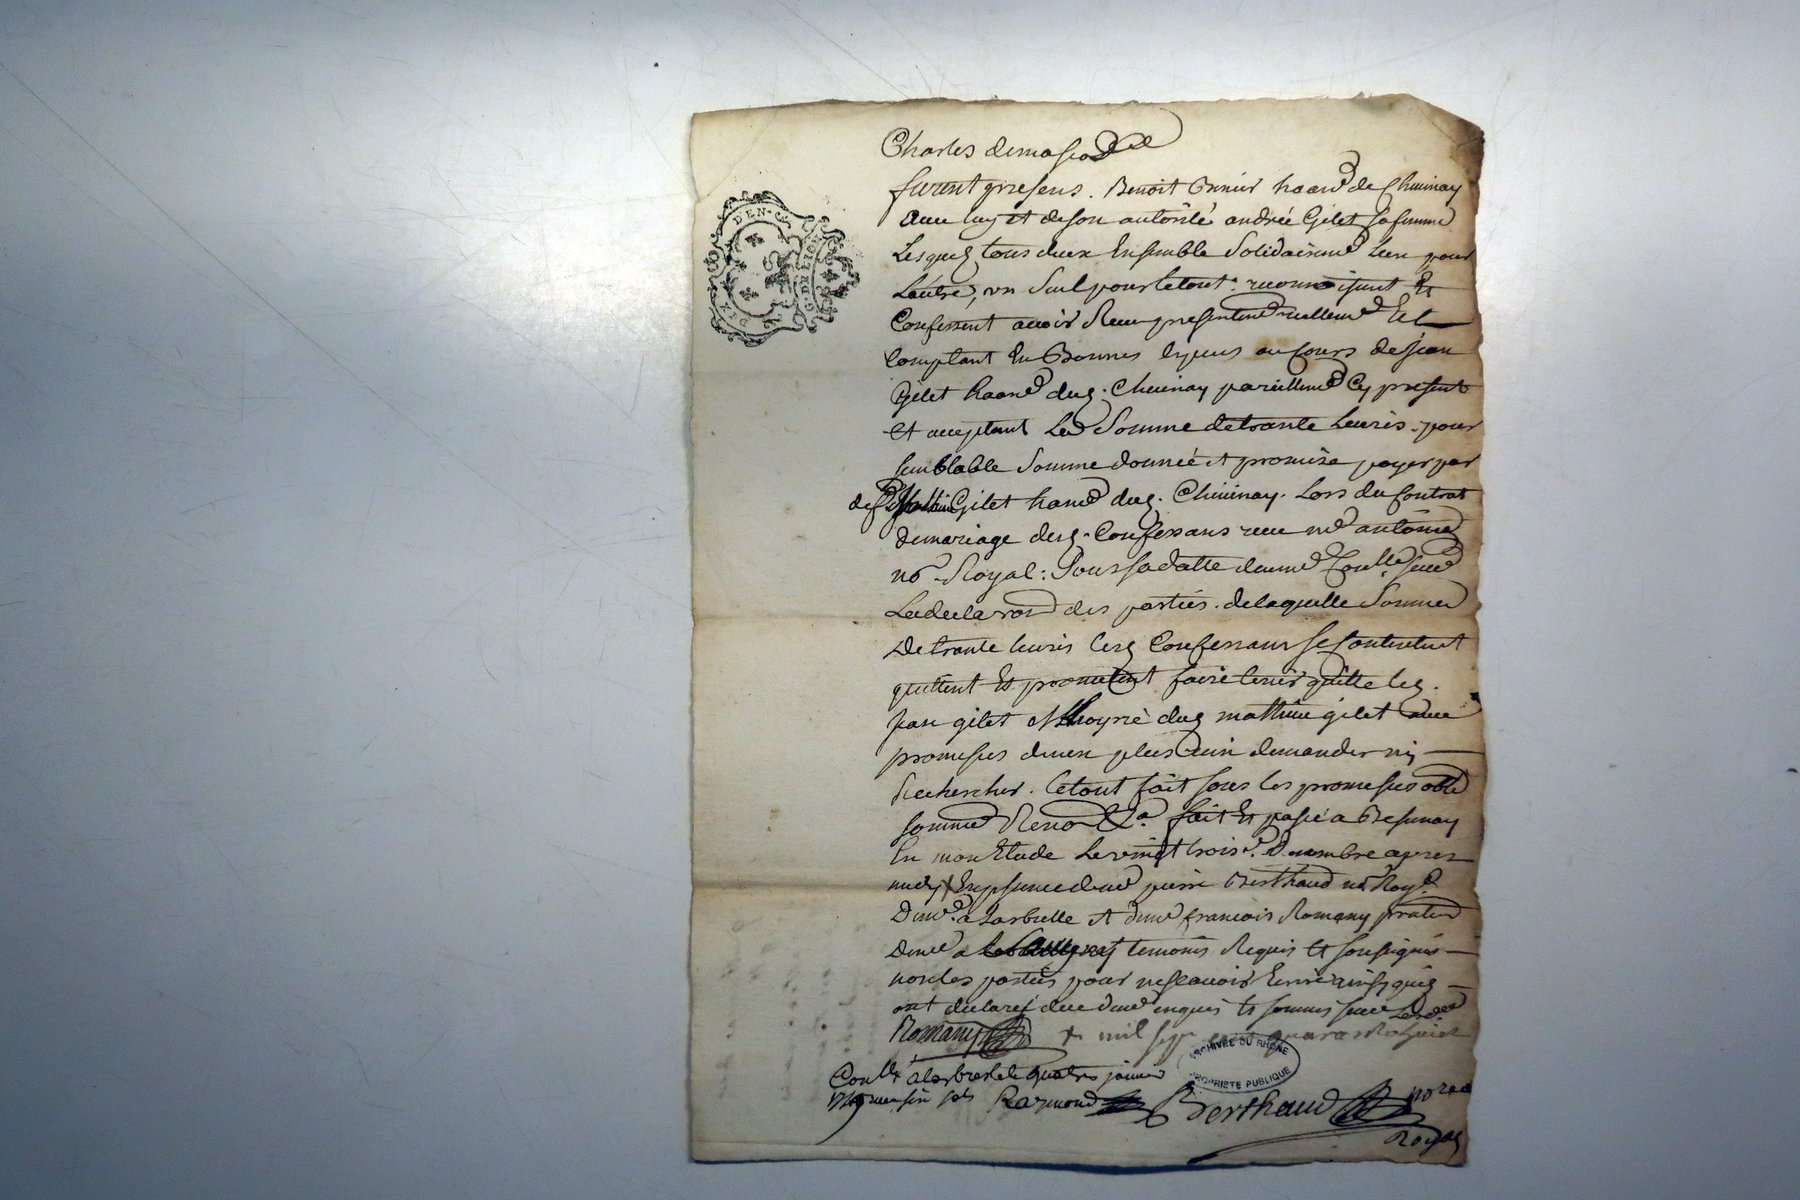 Charles
furent presens. Benoit haand de Chuinay
avec luy et de son autôrité andrée Gilet sa femme
Lesquels tous deux Ensemble Solidairemd Lun pour
Lautre, un Seul pour le tout. reconnoisent Et
Confessent avoir Receu presentemd reellemd Et
Comptant En Bonnes espeses au Cours de Jean
Gilet haand dud. Chuinay pareillemd Cy present
et acceptant La Somme de trante Livres. pour
semblable Somme donnée et promise payer par
def Gilet haand dud. Chuinay. Lors du Contrat
de mariage desd. Confessans receu me antôine
no Royal: sous sa datte
La declaron des parties. de laquelle Somme
De trante livres lesd Confessans se Contentent
quittent Et promettent faire tenir quitte led.
Jean gilet et dud mathieu gilet avec
promesses den plus rien demander ni
Rechercher. Le tout fait sous les promesses obld
Renon &a. fait Et passé a Bessenay
En mon Etude Le vingt trois e. Decembre apres
midy x En presence de me pierre Berthaud no Roy.
Demt. a Larbrelle et de me françois Romany praticn
Demt a temoins Requis Et soussignés
non les parties pour ne scavoir Ecrire ainsy quils
ont declaré de ce enquis Et sommés
Romany x mil sept cent quara
Conllé a Larbresle le quatre janvier
Raymond Berthaud no
Royal
DEN
DIX
G. DE LION
ARCHIVES DU RHONE
PROPRIETE PUBLIQUE